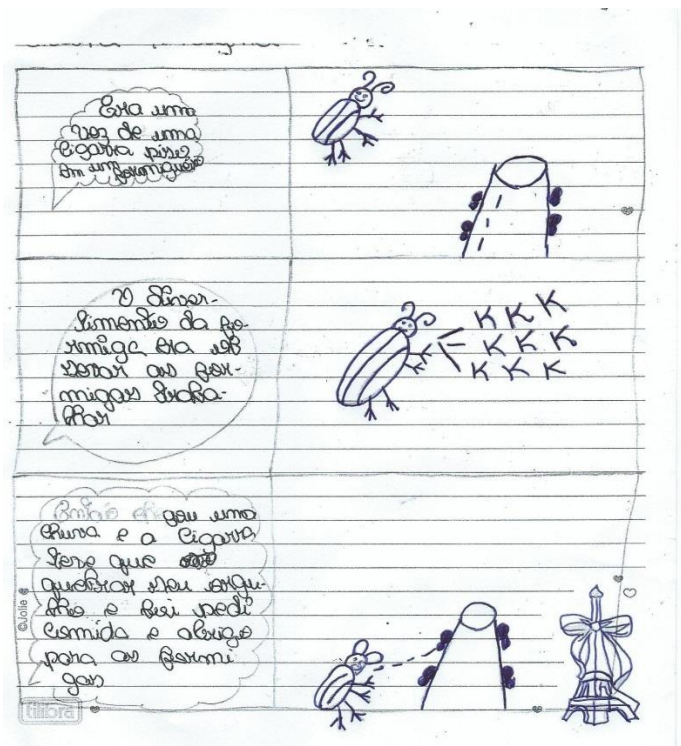 Era uma
vez de uma
cigarra
em um formigueiro
O diver-
timento da for-
miga era ob
servar as for-
migas traba-
lhar
K K K
K K K
K K K
Então che gou uma
chuva e a cigarra
teve que
quebrar seu orgu-
lho e foi pedi
comida e abrigo
para as formi
gas
©Jolie
tilibra